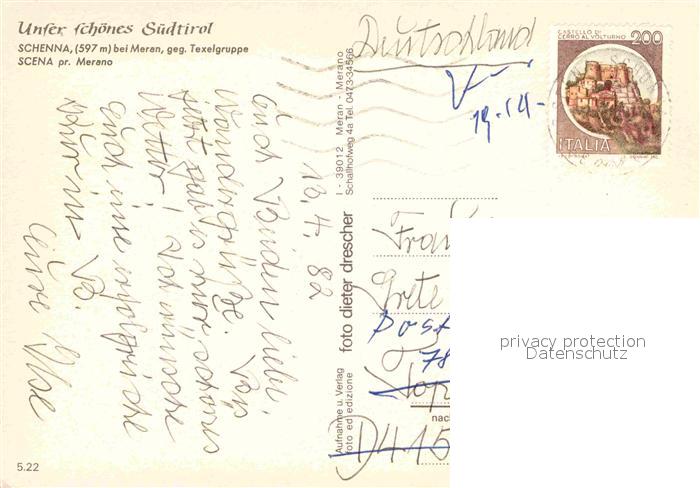 Unser schönes Südtirol
SCHENNA, (597 m) bei Meran, geg. Texelgruppe
SCENA pr. Merano
Deutschland
19.14-
CASTELLO DI
CERRO AL VOLTURNO
200
ITALIA
16.4.82
Euch Beiden liebe
Wandergrüße.
jetzt schönes
Wetter! Ich wünsche
Euch eine erfolgreiche
Eure Ilse
I - 39012 Meran - Merano
Schallhofweg 4a Tel. 0473-34566
foto dieter drescher
Aufnahme u. Verlag
foto ed edizione
Frau
Grete
Post
T 78
D 415
privacy protection
Datenschutz
5.22